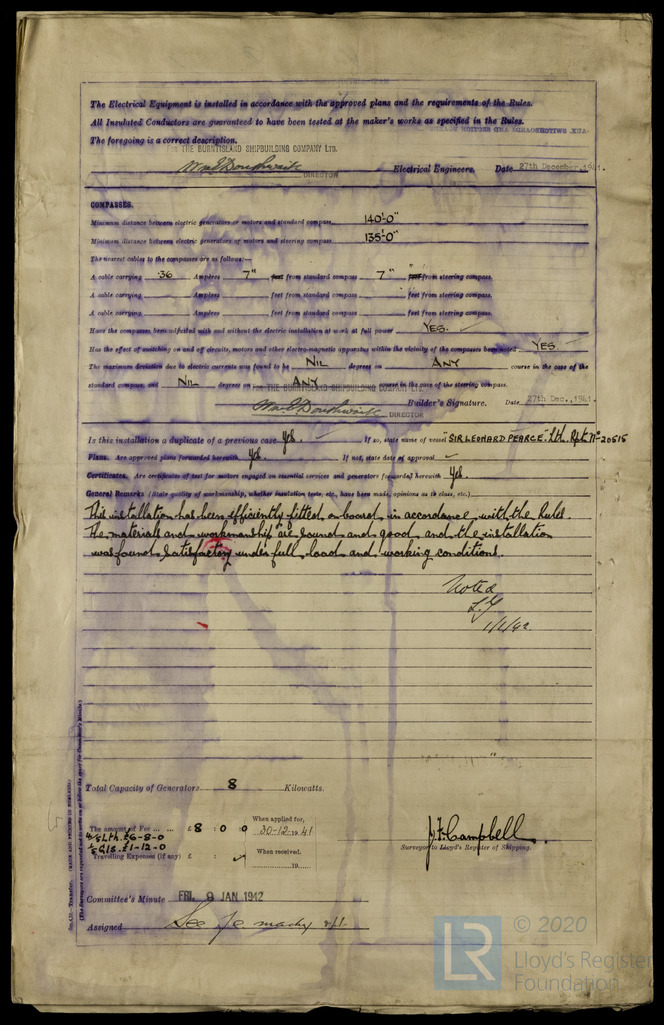 The Electrical Equipment is installed in accordance with the approved plans and the requirements of the Rules.
All Insulated Conductors are guaranteed to have been tested at the maker's works as specified in the Rules.
The foregoing is a correct description.
For THE BURNTISLAND SHIPBUILDING COMPANY LTD.
DIRECTOR Electrical Engineers. Date 27th December, 1941.
COMPASSES.
Minimum distance between electric generators or motors and standard compass 140'-0"
Minimum distance between electric generators or motors and steering compass 135'-0"
The nearest cables to the compasses are as follows:—
A cable carrying .36 Ampères 7" feet from standard compass 7" feet from steering compass.
A cable carrying Ampères feet from standard compass feet from steering compass.
A cable carrying Ampères feet from standard compass feet from steering compass.
Have the compasses been adjusted with and without the electric installation at work at full power YES.
Has the effect of switching on and off circuits, motors and other electro-magnetic apparatus within the vicinity of the compasses been noted YES
The maximum deviation due to electric currents was found to be NIL degrees on ANY course in the case of the
standard compass, and NIL degrees on ANY course in the case of the steering compass.
For THE BURNTISLAND SHIPBUILDING COMPANY LTD.
DIRECTOR Builder's Signature. Date 27th Dec., 1941.
Is this installation a duplicate of a previous case Yes. If so, state name of vessel "SIR LEONARD PEARCE". Lth. Rpt. No 20515
Plans. Are approved plans forwarded herewith Yes. If not, state date of approval
Certificates. Are certificates of test for motors engaged on essential services and generators forwarded herewith Yes.
General Remarks (State quality of workmanship, whether insulation tests, etc., have been made, opinions as to class, etc.)
This installation has been efficiently fitted on board, in accordance with the Rules.
The materials and workmanship are sound and good and the installation
was found satisfactory under full load and working conditions.
Noted
1/1/42
Total Capacity of Generators 8 Kilowatts.
The amount of Fee ... ... £ 8 : 0 : 0 When applied for, 30-12-1941
4/5 Lth. £6-8-0
1/5 Gls. £1-12-0
Travelling Expenses (if any) £ : : When received, 19
J F Campbell
Surveyor to Lloyd's Register of Shipping.
Committee's Minute FRI. 9 JAN 1942
Assigned See
© 2020
LR Lloyd's Register
Foundation